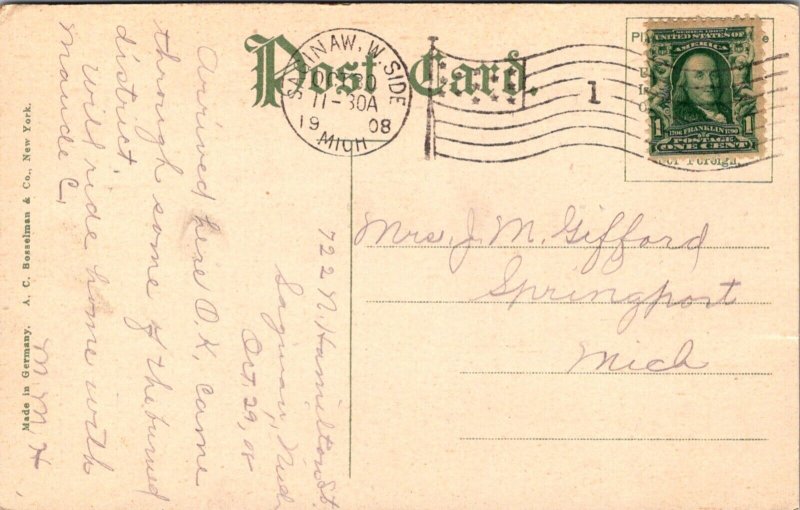 Post Card.
SAGINAW, W. SIDE
OCT 30
11-30A
1908
MICH
1
SERIES 1902
UNITED STATES OF
AMERICA
1706 FRANKLIN 1790
1 POSTAGE 1
ONE CENT
or Foreign,
Mrs. J. M. Gifford
Springport
Mich
722 N. Hamilton St.
Saginaw, Mich
Oct. 29, 08
Arrived here O.K. Came
through some of the burned
district.
Will ride home with
Maude C,
M M H
Made in Germany. A. C. Bosselman & Co., New York.